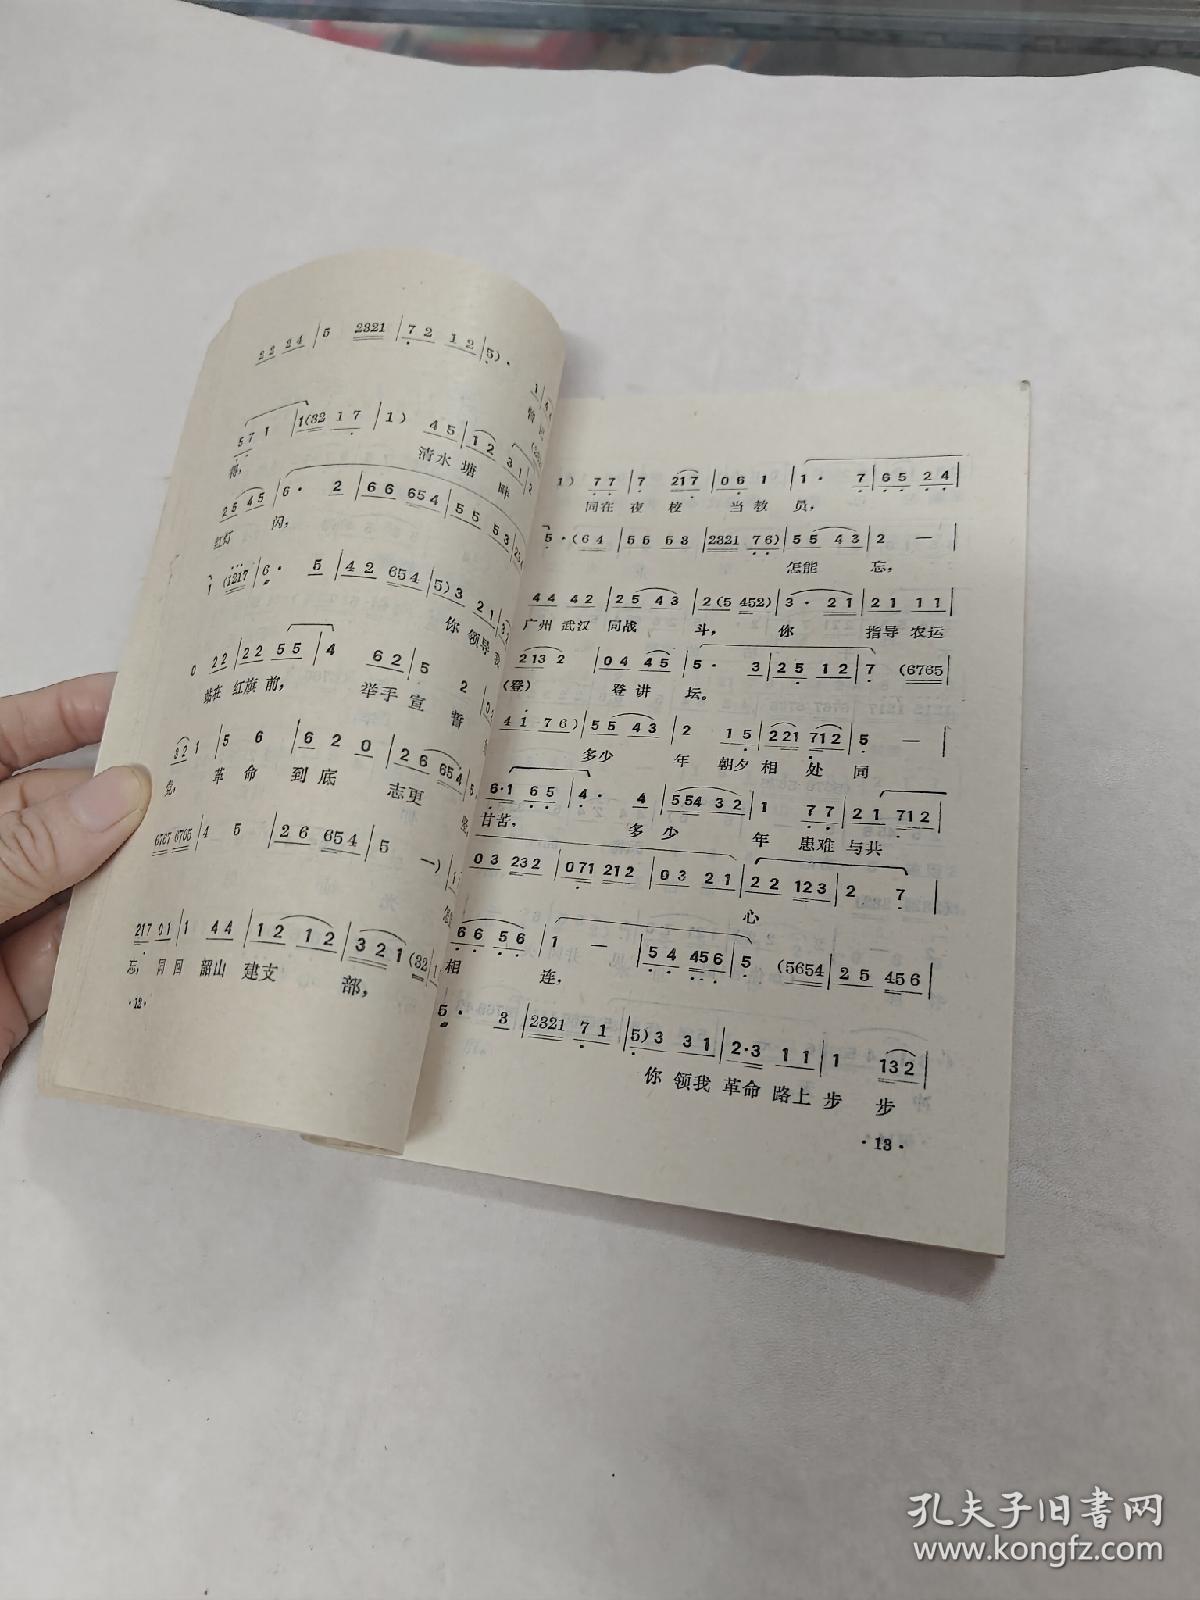 2 2 2 4 | 5 2321 | 7 2 1 2 | 5) ·
5 7 1 | 1 (32 1 7 | 1) 4 5 | 1 2 3 1 |
清水 塘 畔
2 5 4 5 | 5 · 2 | 6 6 654 | 5 5 5 3 |
红灯 闪,
(1217 | 6 · 5 | 4 2 654 | 5) 3 2 1 |
你 领导 我
0 2 2 | 2 2 5 5 | 4 6 2 | 5 2
站在 红旗 前, 举手 宣 誓
3 2 1 | 5 6 | 6 2 0 | 2 6 654
党, 革 命 到 底 志更
6767 6765 | 4 5 | 2 6 654 | 5 一)
217 2 1 | 1 4 4 | 1 2 1 2 | 3 2 1 (32
忘, 同回 韶山 建支 部,
·12·
1) 7 7 | 7 217 | 0 6 1 | 1 · 7 | 6 5 2 4 |
同在 夜 校 当 教 员,
5 · (6 4 | 5 5 5 3 | 2321 7 6) | 5 5 4 3 | 2 — |
怎能 忘,
4 4 4 2 | 2 5 4 3 | 2 (5 452) | 3 · 2 1 | 2 1 1 1
广州 武汉 同战 斗, 你 指导 农运
213 2 | 0 4 4 5 | 5 · 3 | 2 5 1 2 | 7 (6765
(登) 登讲 坛。
4 1 · 7 6) | 5 5 4 3 | 2 1 5 | 221 712 | 5 — |
多少 年 朝夕 相 处 同
6·1 6 5 | 4 · 4 | 554 3 2 | 1 7 7 | 2 1 712
甘苦, 多少 年 患难 与共
0 3 232 | 071 212 | 0 3 2 1 | 2 2 123 | 2 7 |
心
6 6 5 6 | 1 — | 5 4 456 | 5 (5654 | 2 5 456
相 连,
5 · 3 | 2321 7 1 | 5) 3 3 1 | 2·3 1 1 | 1 132 |
你 领我 革命 路上 步 步
·13·
孔夫子旧书网
www.kongfz.com